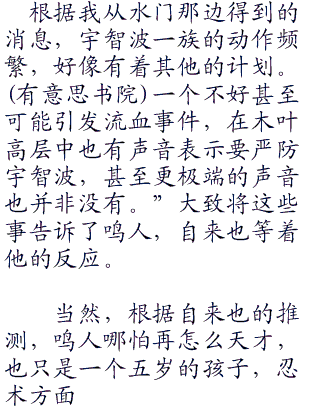 根据我从水门那边得到的
消息，宇智波一族的动作频
繁，好像有着其他的计划。
(有意思书院)一个不好甚至
可能引发流血事件，在木叶
高层中也有声音表示要严防
宇智波，甚至更极端的声音
也并非没有。”大致将这些
事告诉了鸣人，自来也等着
他的反应。
当然，根据自来也的推
测，鸣人哪怕再怎么天才，
也只是一个五岁的孩子，忍
术方面